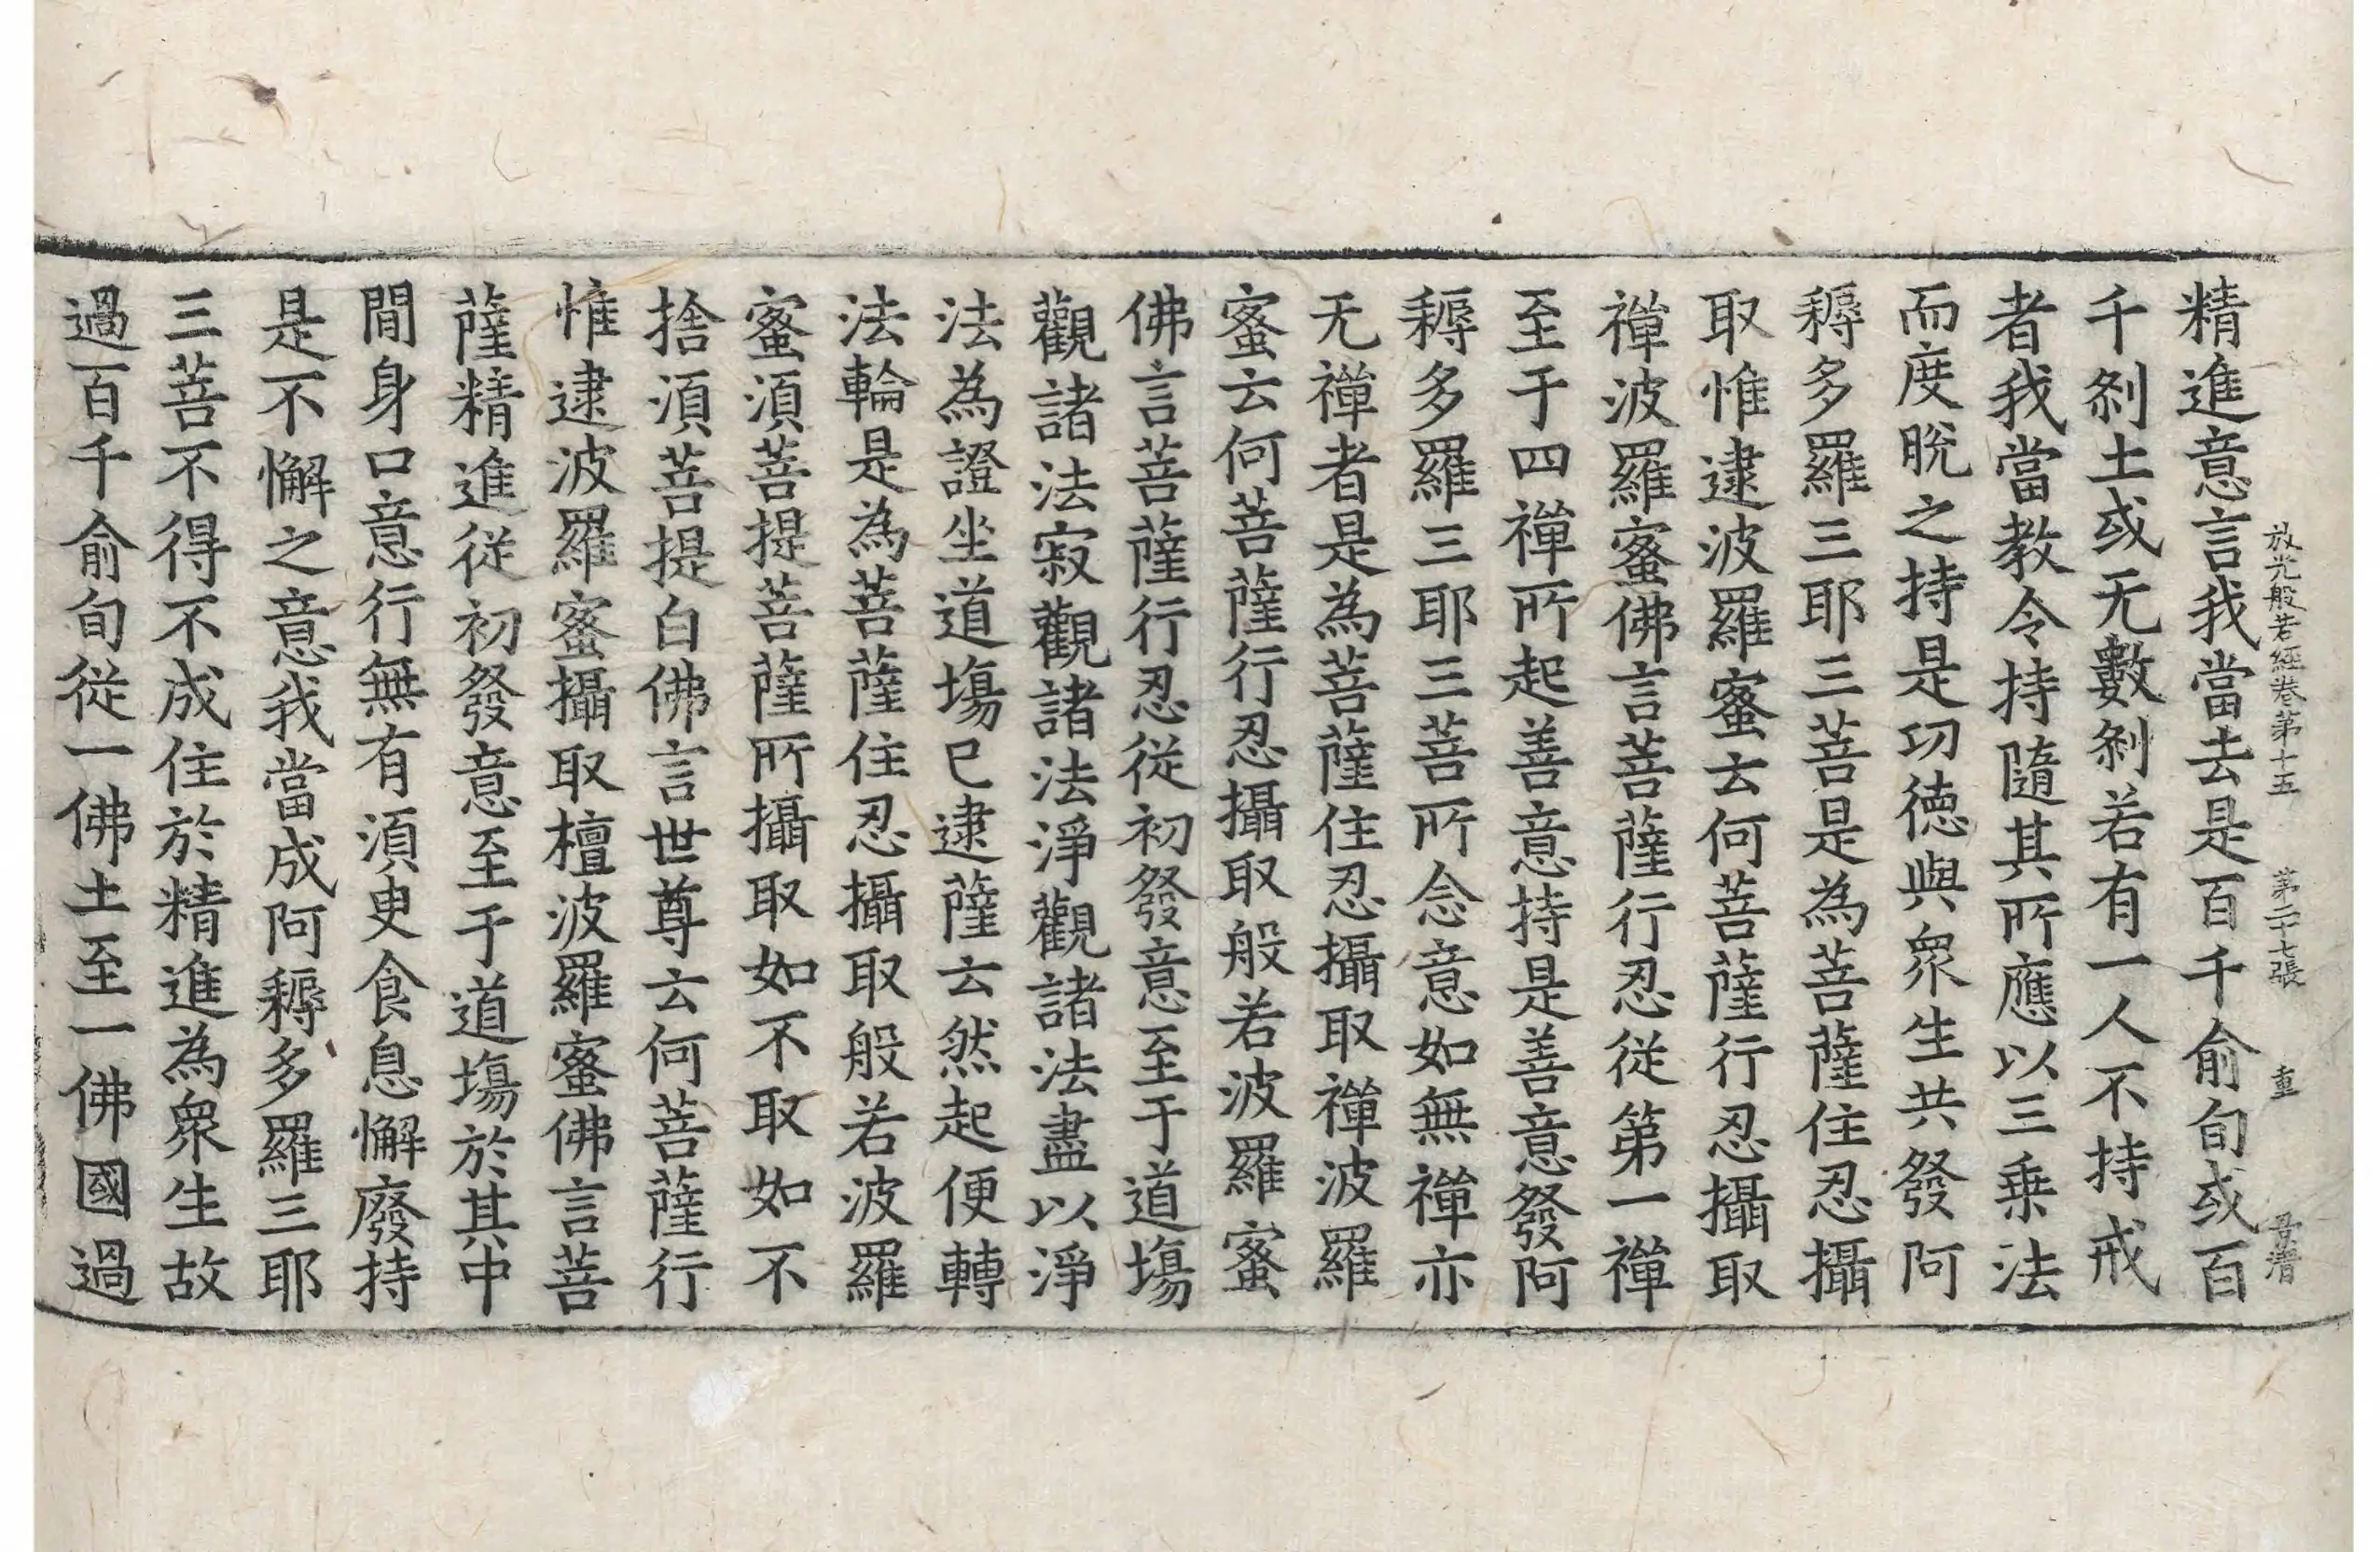 放光般若經卷第十五 第二十七張 重
精進意言我當去是百千俞旬或百
千剎土或无數剎若有一人不持戒
者我當教令持隨其所應以三乗法
而度脫之持是功德與眾生共發阿
耨多羅三耶三菩是為菩薩住忍攝
取惟逮波羅蜜云何菩薩行忍攝取
禪波羅蜜佛言菩薩行忍從第一禪
至于四禪所起善意持是善意發阿
耨多羅三耶三菩所念意如無禪亦
无禪者是為菩薩住忍攝取禪波羅
蜜云何菩薩行忍攝取般若波羅蜜
佛言菩薩行忍從初發意至于道場
觀諸法寂觀諸法淨觀諸法盡以淨
法為證坐道場已逮薩云然起便轉
法輪是為菩薩住忍攝取般若波羅
蜜須菩提菩薩所攝取如不取如不
捨須菩提白佛言世尊云何菩薩行
惟逮波羅蜜攝取檀波羅蜜佛言菩
薩精進從初發意至于道場於其中
間身口意行無有須臾食息懈廢持
是不懈之意我當成阿耨多羅三耶
三菩不得不成住於精進為眾生故
過百千俞旬從一佛土至一佛國過